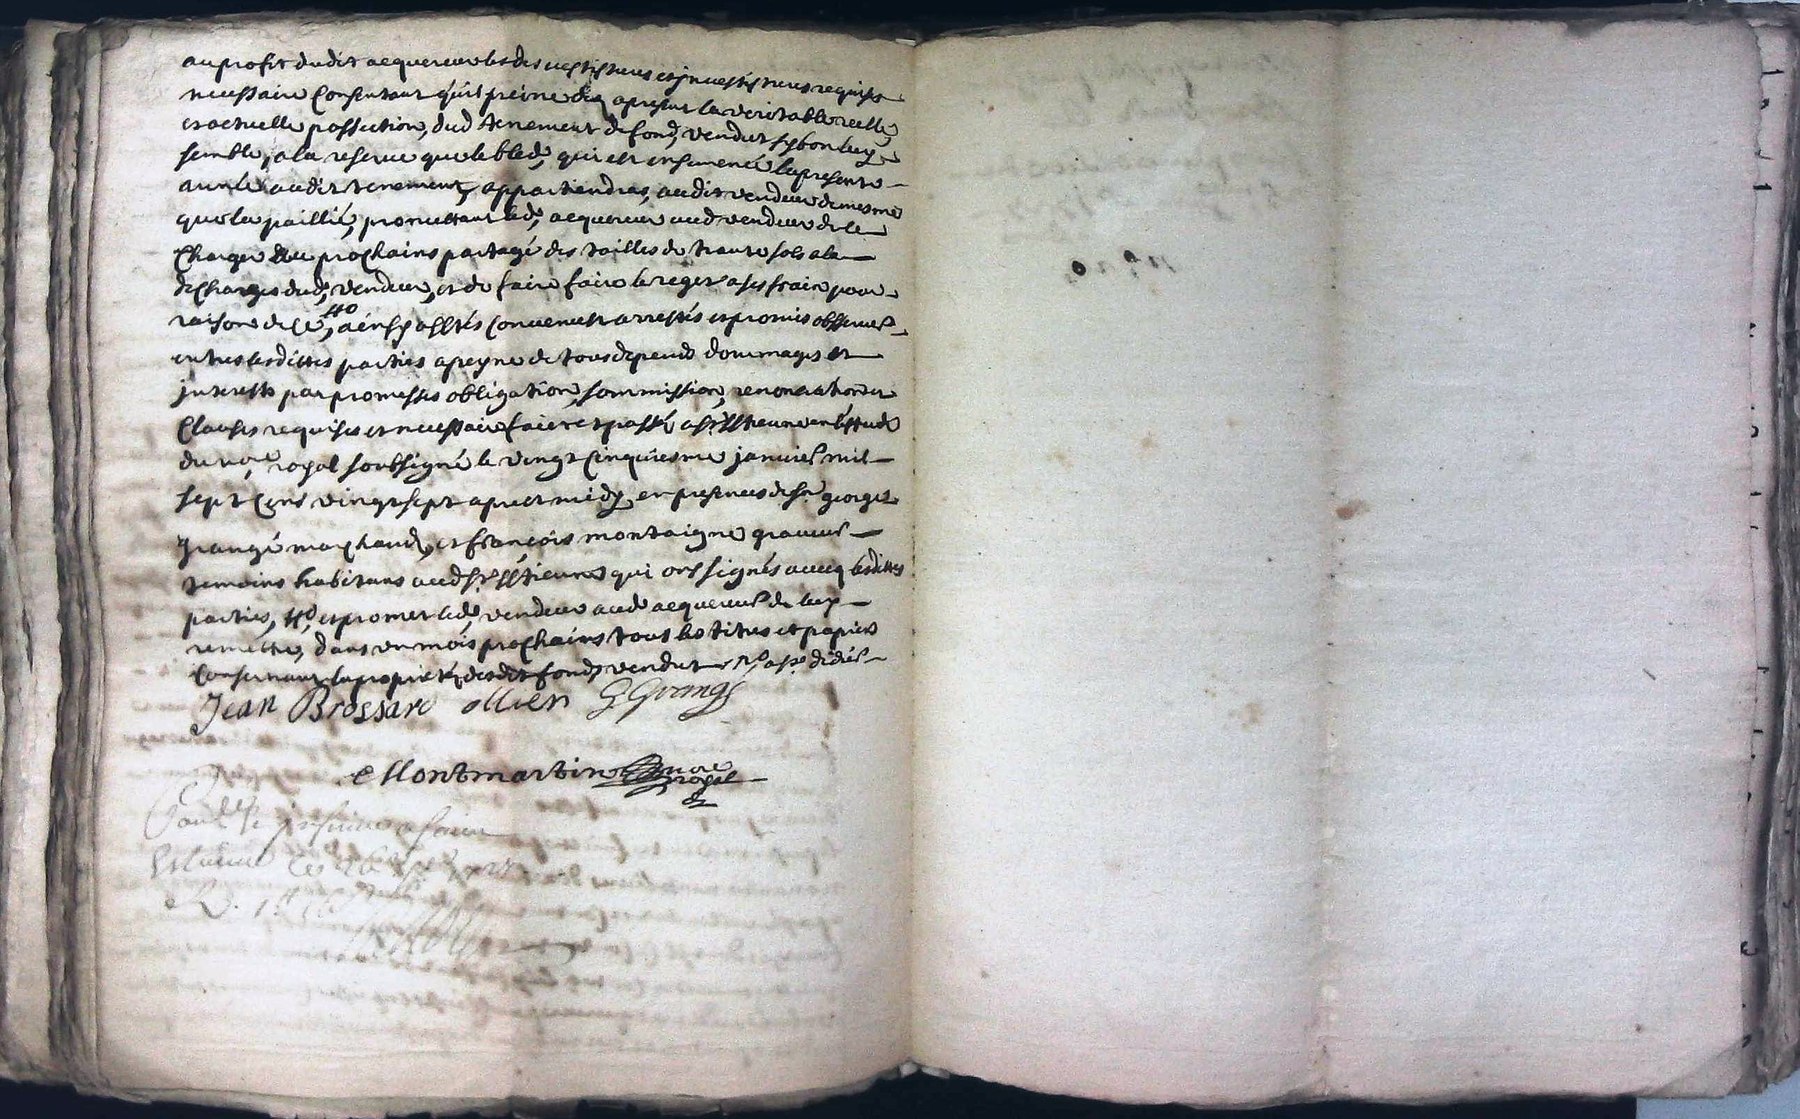 au profit dudit acquereur les desvestitures et jnvestitures requises
necessaire Consentant qu'il preine des apresent la veritable reelle
et actuelle possection, dud tenement de fond, vendut sy bon luy
semble, a la reserve que le bled, qui est ensemencé la presente
année audit tenement, appartiendra, audit vendeur de mesme
que la paillié, promettant led, acquereur aud vendeur de le
Charger au prochains partagé des tailles de trante sols a la
descharges dud, vendeur, et de faire faire le reget a ses frais pour
raison de ce, ainsy a estés Convenut arrestés et promis observer
entres lesdittes parties a peyne de tous depends dommages et
jnterests par promesses obligation, sommission, renonciation et
Clauses requises et necessaire faict et passé a st Estienne en l'estude
du nore royal soubsigné le vingt Cinquiesme janvier mil
sept Cens vingt sept apres midy en presences de sr georges
grangé marchand, et francois montaigne graveur
temoins habitans aud st Estienne qui ont signés avecq lesdittes
parties, et promet led, vendeur aud acquereur de luy
remettre, dans un mois prochains tous les titres et papiers
Consernant la proprieté, desdit fond, vendut
Jean Brossard ollier G Grange
Montmartin nore royal